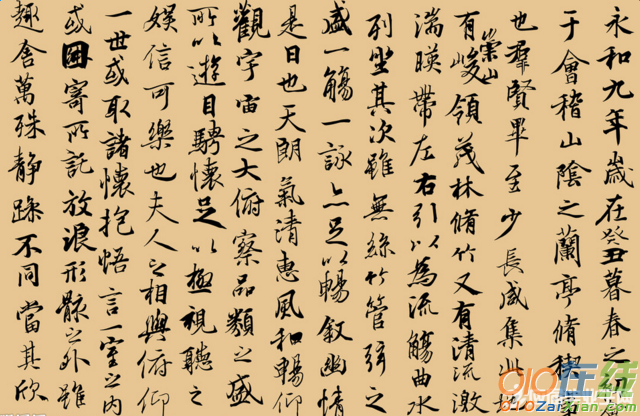 永和九年歲在癸丑暮春之初
于會稽山陰之蘭亭脩稧
也羣賢畢至少長咸集此
有崇山峻領茂林脩竹又有清流激
湍暎帶左右引以為流觴曲水
列坐其次雖無絲竹管弦之
盛一觴一詠亦足以暢敘幽情
是日也天朗氣清惠風和暢仰
觀宇宙之大俯察品類之盛
所以遊目騁懷足以極視聽之
娛信可樂也夫人之相與俯仰
一世或取諸懷抱悟言一室之內
或因寄所託放浪形骸之外雖
趣舍萬殊靜躁不同當其欣
010在线
010zaixian.com